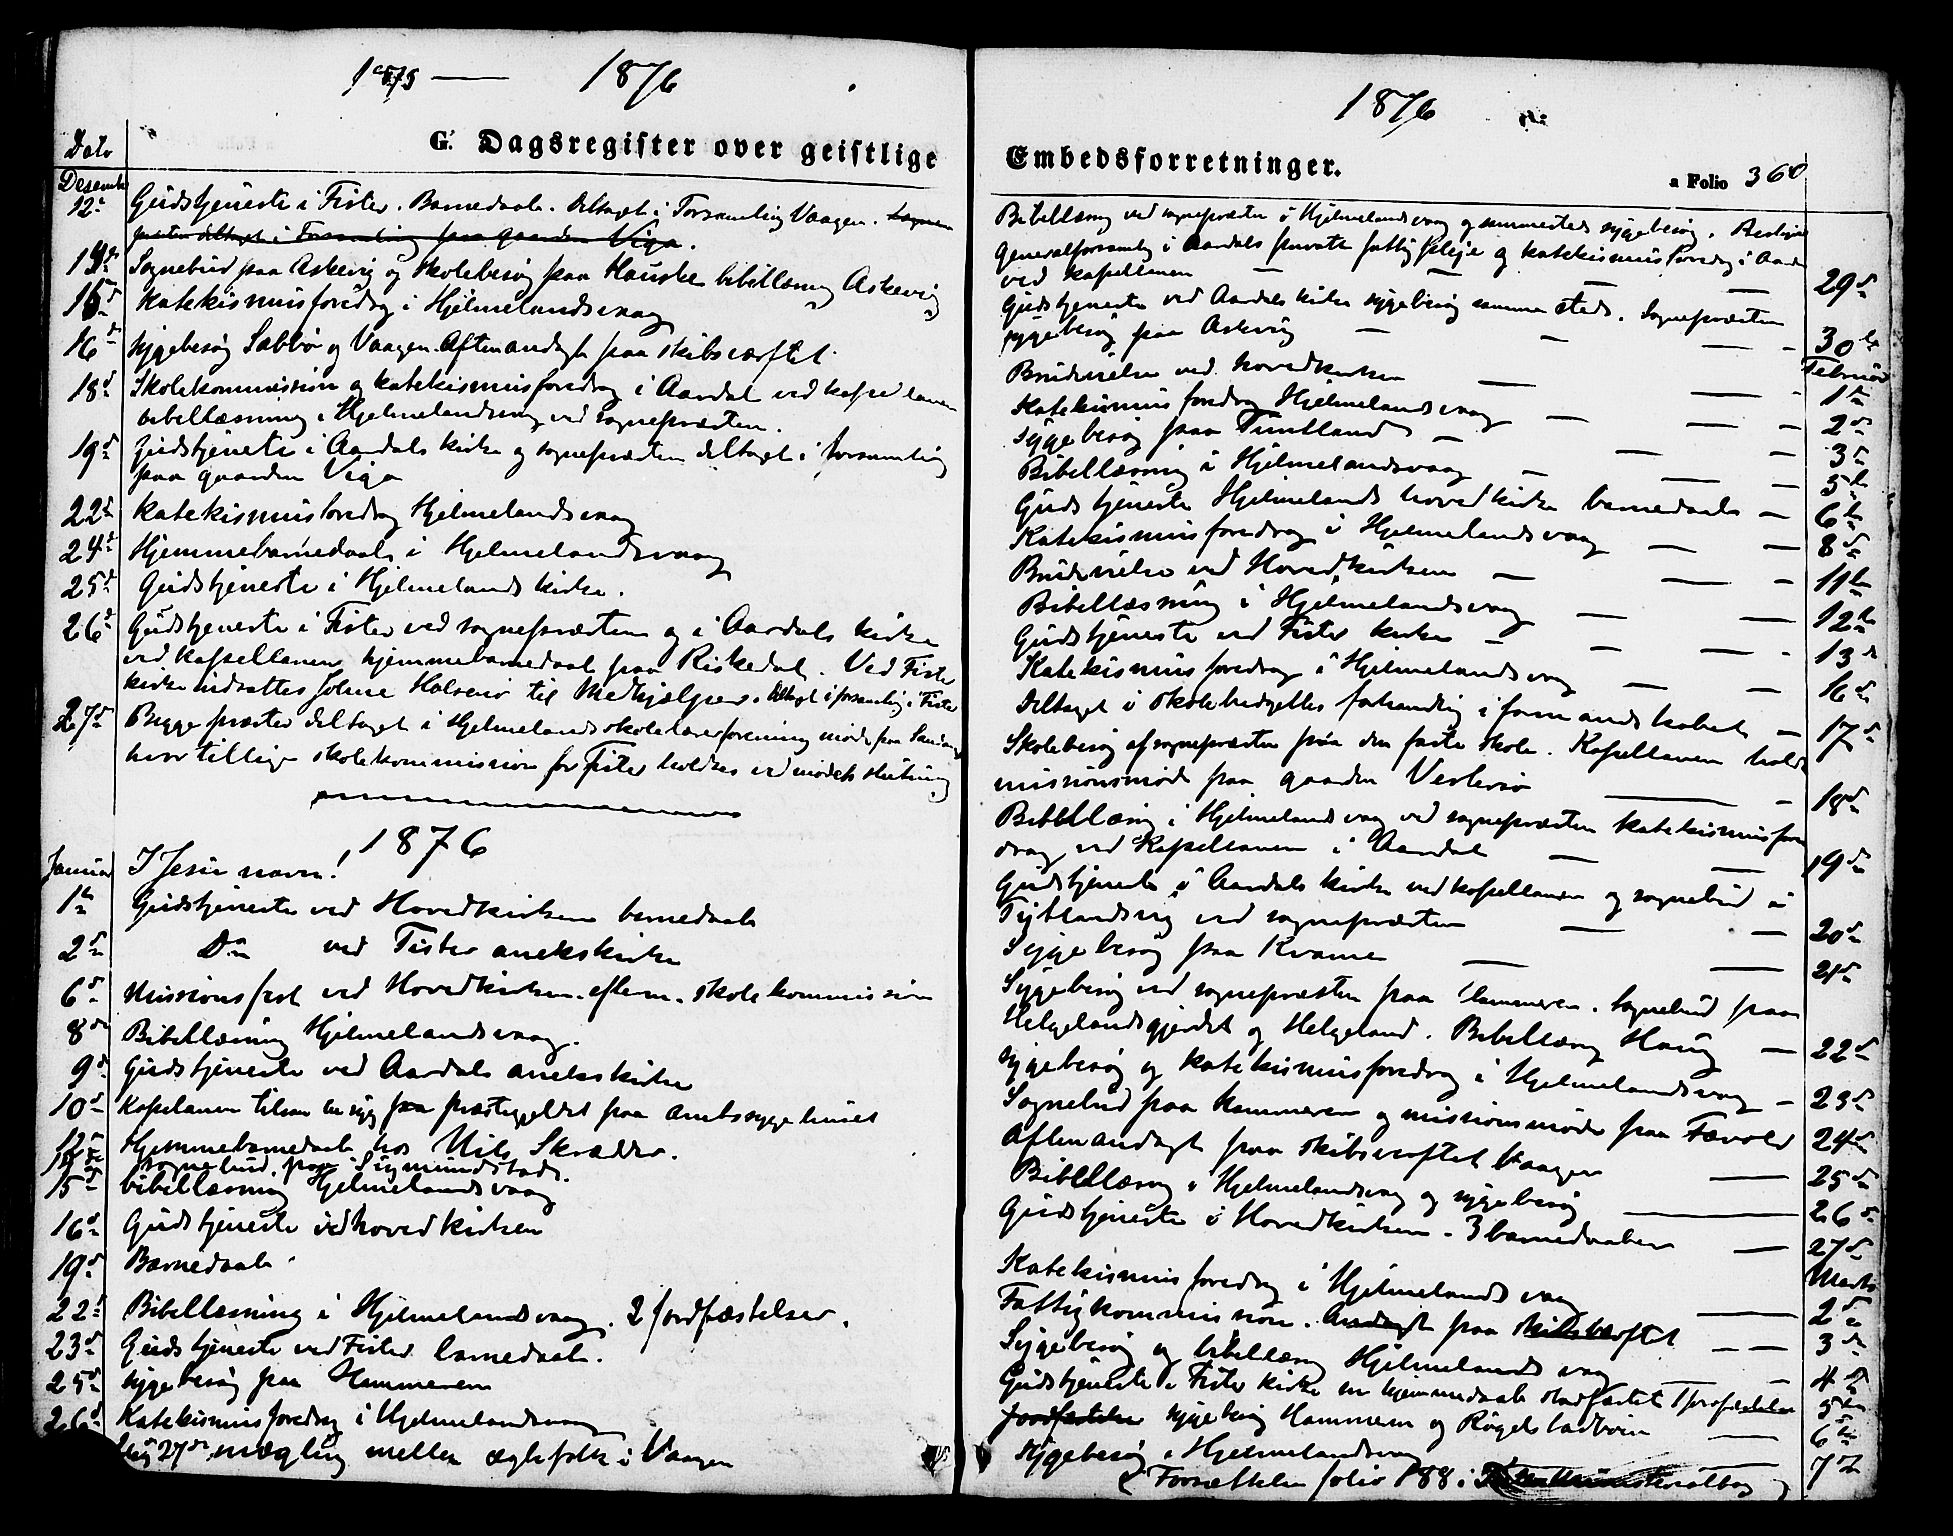 1875 — 1876
G. Dagsregister over geistlige
Dato
Desember
12te Gudstjeneste i Fister. Barnedaab. Deltaget i Forsamling Vaagen. Sogne-
præsten deltaget i Forsamling paa gaarden Viga.
14de Sognebud paa Askevig og skolebesøg paa Hauske bibellæsning Askevig
15de Katekismusforedrag i Hjelmelandsvaag
16de sygebesøg Sæbbø og Vaagen. Aftenandagt paa skibsværftet.
18de Skolekommission og katekismusforedrag i Aardal ved kapellanen
bibellæsning i Hjelmelandsvaag ved sognepræsten.
19de Gudstjeneste i Aardals kirke og sognepræsten deltaget i forsamling
paa gaarden Viga
22de Katekismusforedrag Hjelmelandsvaag
24de Hjemmebarnedaab i Hjelmelandsvaag
25de Gudstjeneste i Hjelmelands kirke.
26de Gudstjeneste i Fister ved sognepræsten og i Aardals kirke
ved kapellanen hjemmebarnedaab paa Riskedal. Ved Fister
kirke indsattes Johne Halsnø til Medhjælper. Deltaget i forsamling i Fister
27de Begge præster deltaget i Hjelmelands skolelærerforening møde paa
hvor tillige skolekommission for Fister holdtes ved mødets slutning
1876
Januar I Jesu navn!
1te Gudstjeneste ved Hovedkirken barnedaab
2den Do ved Fister anekskirke
6te Missionsfest ved Hovedkirken. efterm. skolekommission
8de Bibellæsning Hjelmelandsvaag.
9de Gudstjeneste ved Aardals anekskirke
10de Kapelanen tilsaa en syg fra præstegjeldet paa amtssygehuset
12te Hjemmebarnedaab hos Nils Skrædder.
14de sognebud paa Sigmundstad.
15de bibellæsning Hjelmelandsvaag
16de Gudstjeneste ved hovedkirken
19de Barnedaab
22de Bibellæsning i Hjelmelandsvaag. 2 jordfæstelser.
23de Gudstjeneste ved Fister barnedaab.
25de sygebesøg paa Hammeren
26de Katekismusforedrag i Hjelmelandsvaag
27de mægling mellem ægtefolk i Vaagen
1876
Embedsforretninger.
a Folio 360
Bibellæsning ved sognepræsten i Hjelmelandsvaag og sammesteds sygebesøg.
Generalforsamling i Aardals private fattigpleje og katekismusforedrag i Aardal
ved kapellanen — 29de
Gudstjeneste ved Aardals kirke sygebesøg samme steds. Sognepræsten
sygebesøg paa Askvig — 30te
Februar
Brudevielse ved hovedkirken — 1te
Katekismusforedrag Hjelmelandsvaag — 2den
Sygebesøg paa Tuntland — 3de
Bibellæsning i Hjelmelandsvaag — 5te
Gudstjeneste Hjelmelands hovedkirke barnedaab — 6te
Katekismusforedrag i Hjelmelandsvaag — 8de
Brudevielse ved Hovedkirken — 11te
Bibellæsning i Hjelmelandsvaag — 12te
Gudstjeneste ved Fister kirke — 13de
Katekismusforedrag i Hjelmelandsvaag — 16de
Deltaget i skolebudgettets forhandling i formandskabet — 17de
Skolebesøg af sognepræsten paa den faste skole. Kapellanen holdt
missionsmøde paa gaarden Vestersø — 18de
Bibellæsning i Hjelmelandsvaag ved sognepræsten katekismusfore-
drag ved Kapellanen i Aardal — 19de
Gudstjeneste i Aardals kirke ved kapellanen og sognebud i
Tytlandsvig ved sognepræsten — 20de
Sygebesøg paa Kvame — 21de
Sygebesøg ved sognepræsten paa Hammeren. Sognebud paa
Helgelandsgjerdet og Helgeland. Bibellæsning Haug — 22de
sygebesøg og katekismusforedrag i Hjelmelandsvaag — 23de
Sognebud paa Hammeren og missionsmøde paa Fævold 24de
Aftenandagt paa skibsverftet Vaagen — 25de
Bibellæsning i Hjelmelandsvaag og sygebesøg — 26de
Gudstjeneste i Hovedkirken. 3 barnedaaber — 27de
Marts
Katekismusforedrag i Hjelmelandsvaag — 2den
Fattigkommission. Andagt paa skibsværftet — 3de
Sygebesøg og bibellæsning Hjelmelandsvaag — 4de
Gudstjeneste i Fister kirke en hjemmedaab stadfæstet 1 jordfæstelse 5te
jordfæstelse sygebesøg Hammeren og — 6te
Sygebesøg i Hjelmelandsvaag — 7de
Forsættelse folio 188 i